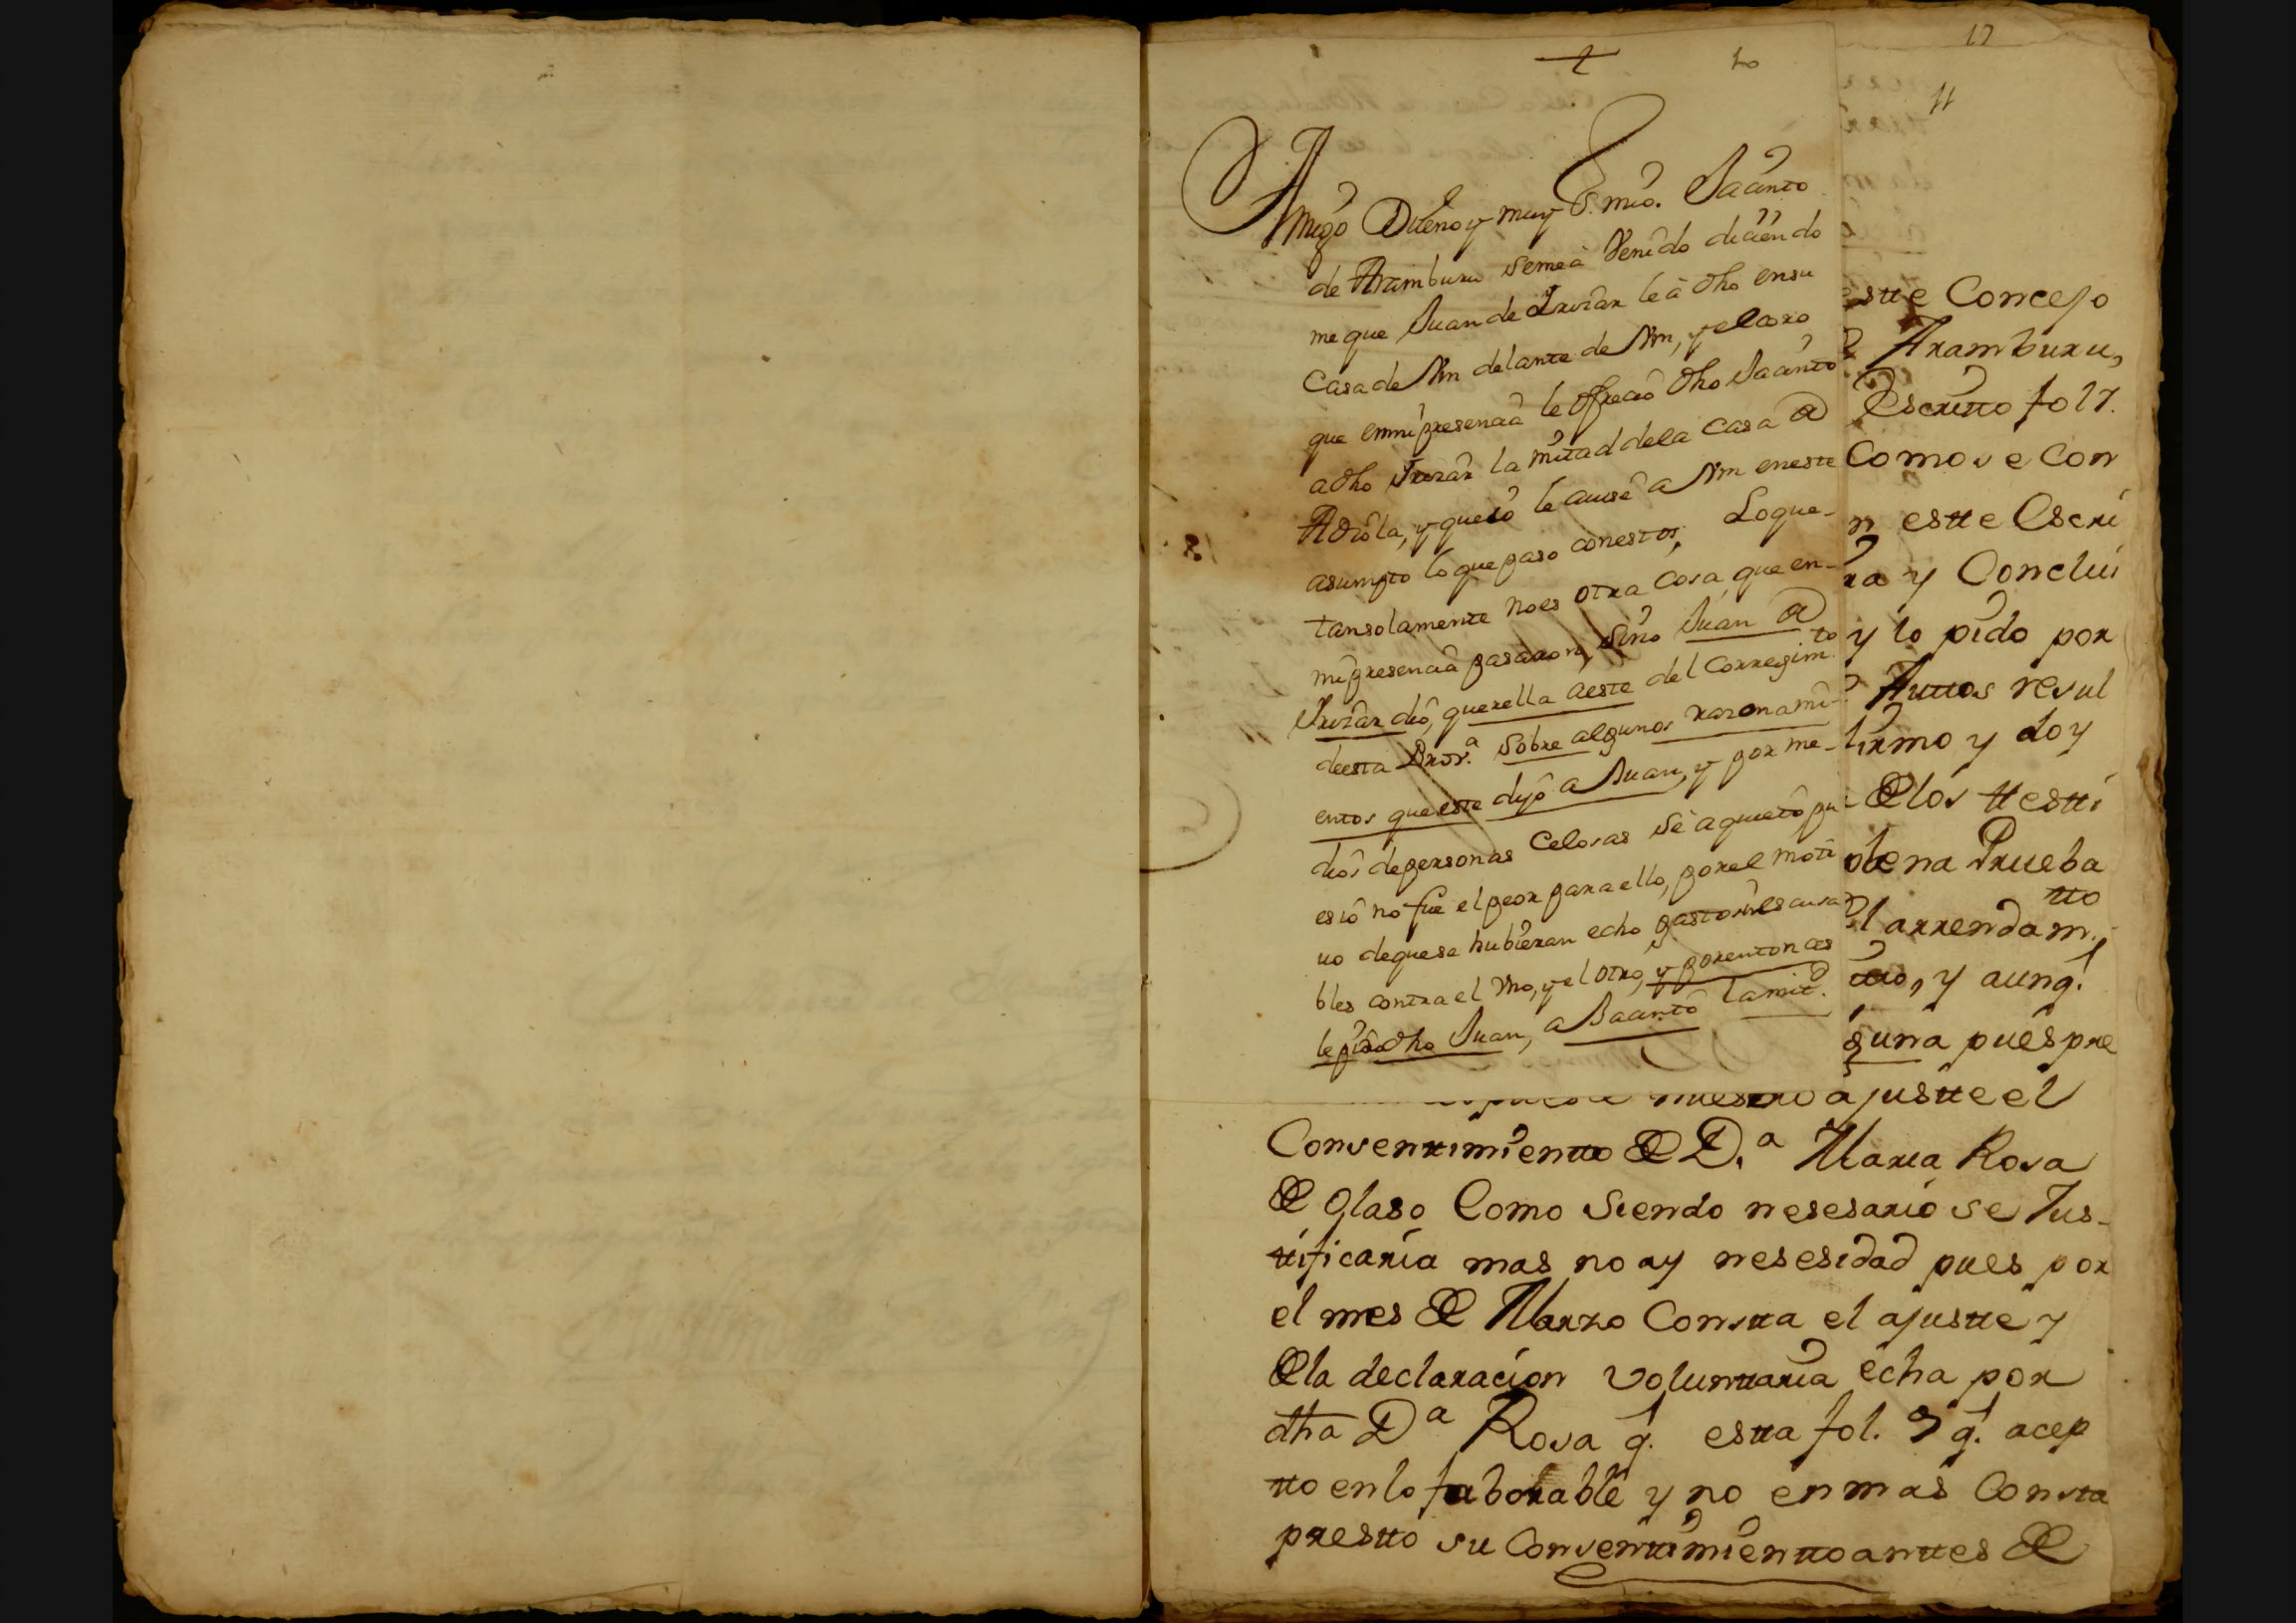 10
17
11
Amigo Dueno y muy S. mio. Jacinto
de Aramburu se me à Venido diciendo
me que Juan de Irizar le à dho en su
Casa de Vm delante de Vm, y el otro
que en mi presencia le ofrecio dho Jacinto
a dho Irizar la mitad de la Casa de
Adiola, y que io le auise a Vm en este
asumpto lo que paso con estos, Lo que
tan solamente no es otra Cosa, que en-
mi presencia pasaron, sino Juan de
Irizar dio, querella à este del Corregim.to
de esta Prov.a sobre algunos razonami-
entos que este dijo a Juan, y por me-
dios de personas Celosas se aquieto, pu
es io no fue el peor para ello, por el moti
uo de que se hubieran echo gastos inescusa
bles contra el Vno, y el otro, y por entonces
le pidio dho Juan, a Jacinto la mit.d
este Concejo
Aramburu,
Escritto fo 17.
Como se Con
n estte Escri
ra y Conclui
y lo pido por
Auttos resul
firmo y doy
de los ttestti
plena Prueba
el arrendam.tto
tto, y aunq.
guna pues pre
nuesttro ajustte el
Consenttimientto de D.a Maria Rosa
de Olaso Como Siendo nesesario se Jus-
ttificaria mas no ay nesesidad pues por
el mes de Marzo Constta el ajustte y
de la declaracion Volunttaria echa por
dha D.a Rosa q. estta fol. 9 q. acep
tto en lo faborable y no en mas Consta
prestto su Consenttimientto anttes de